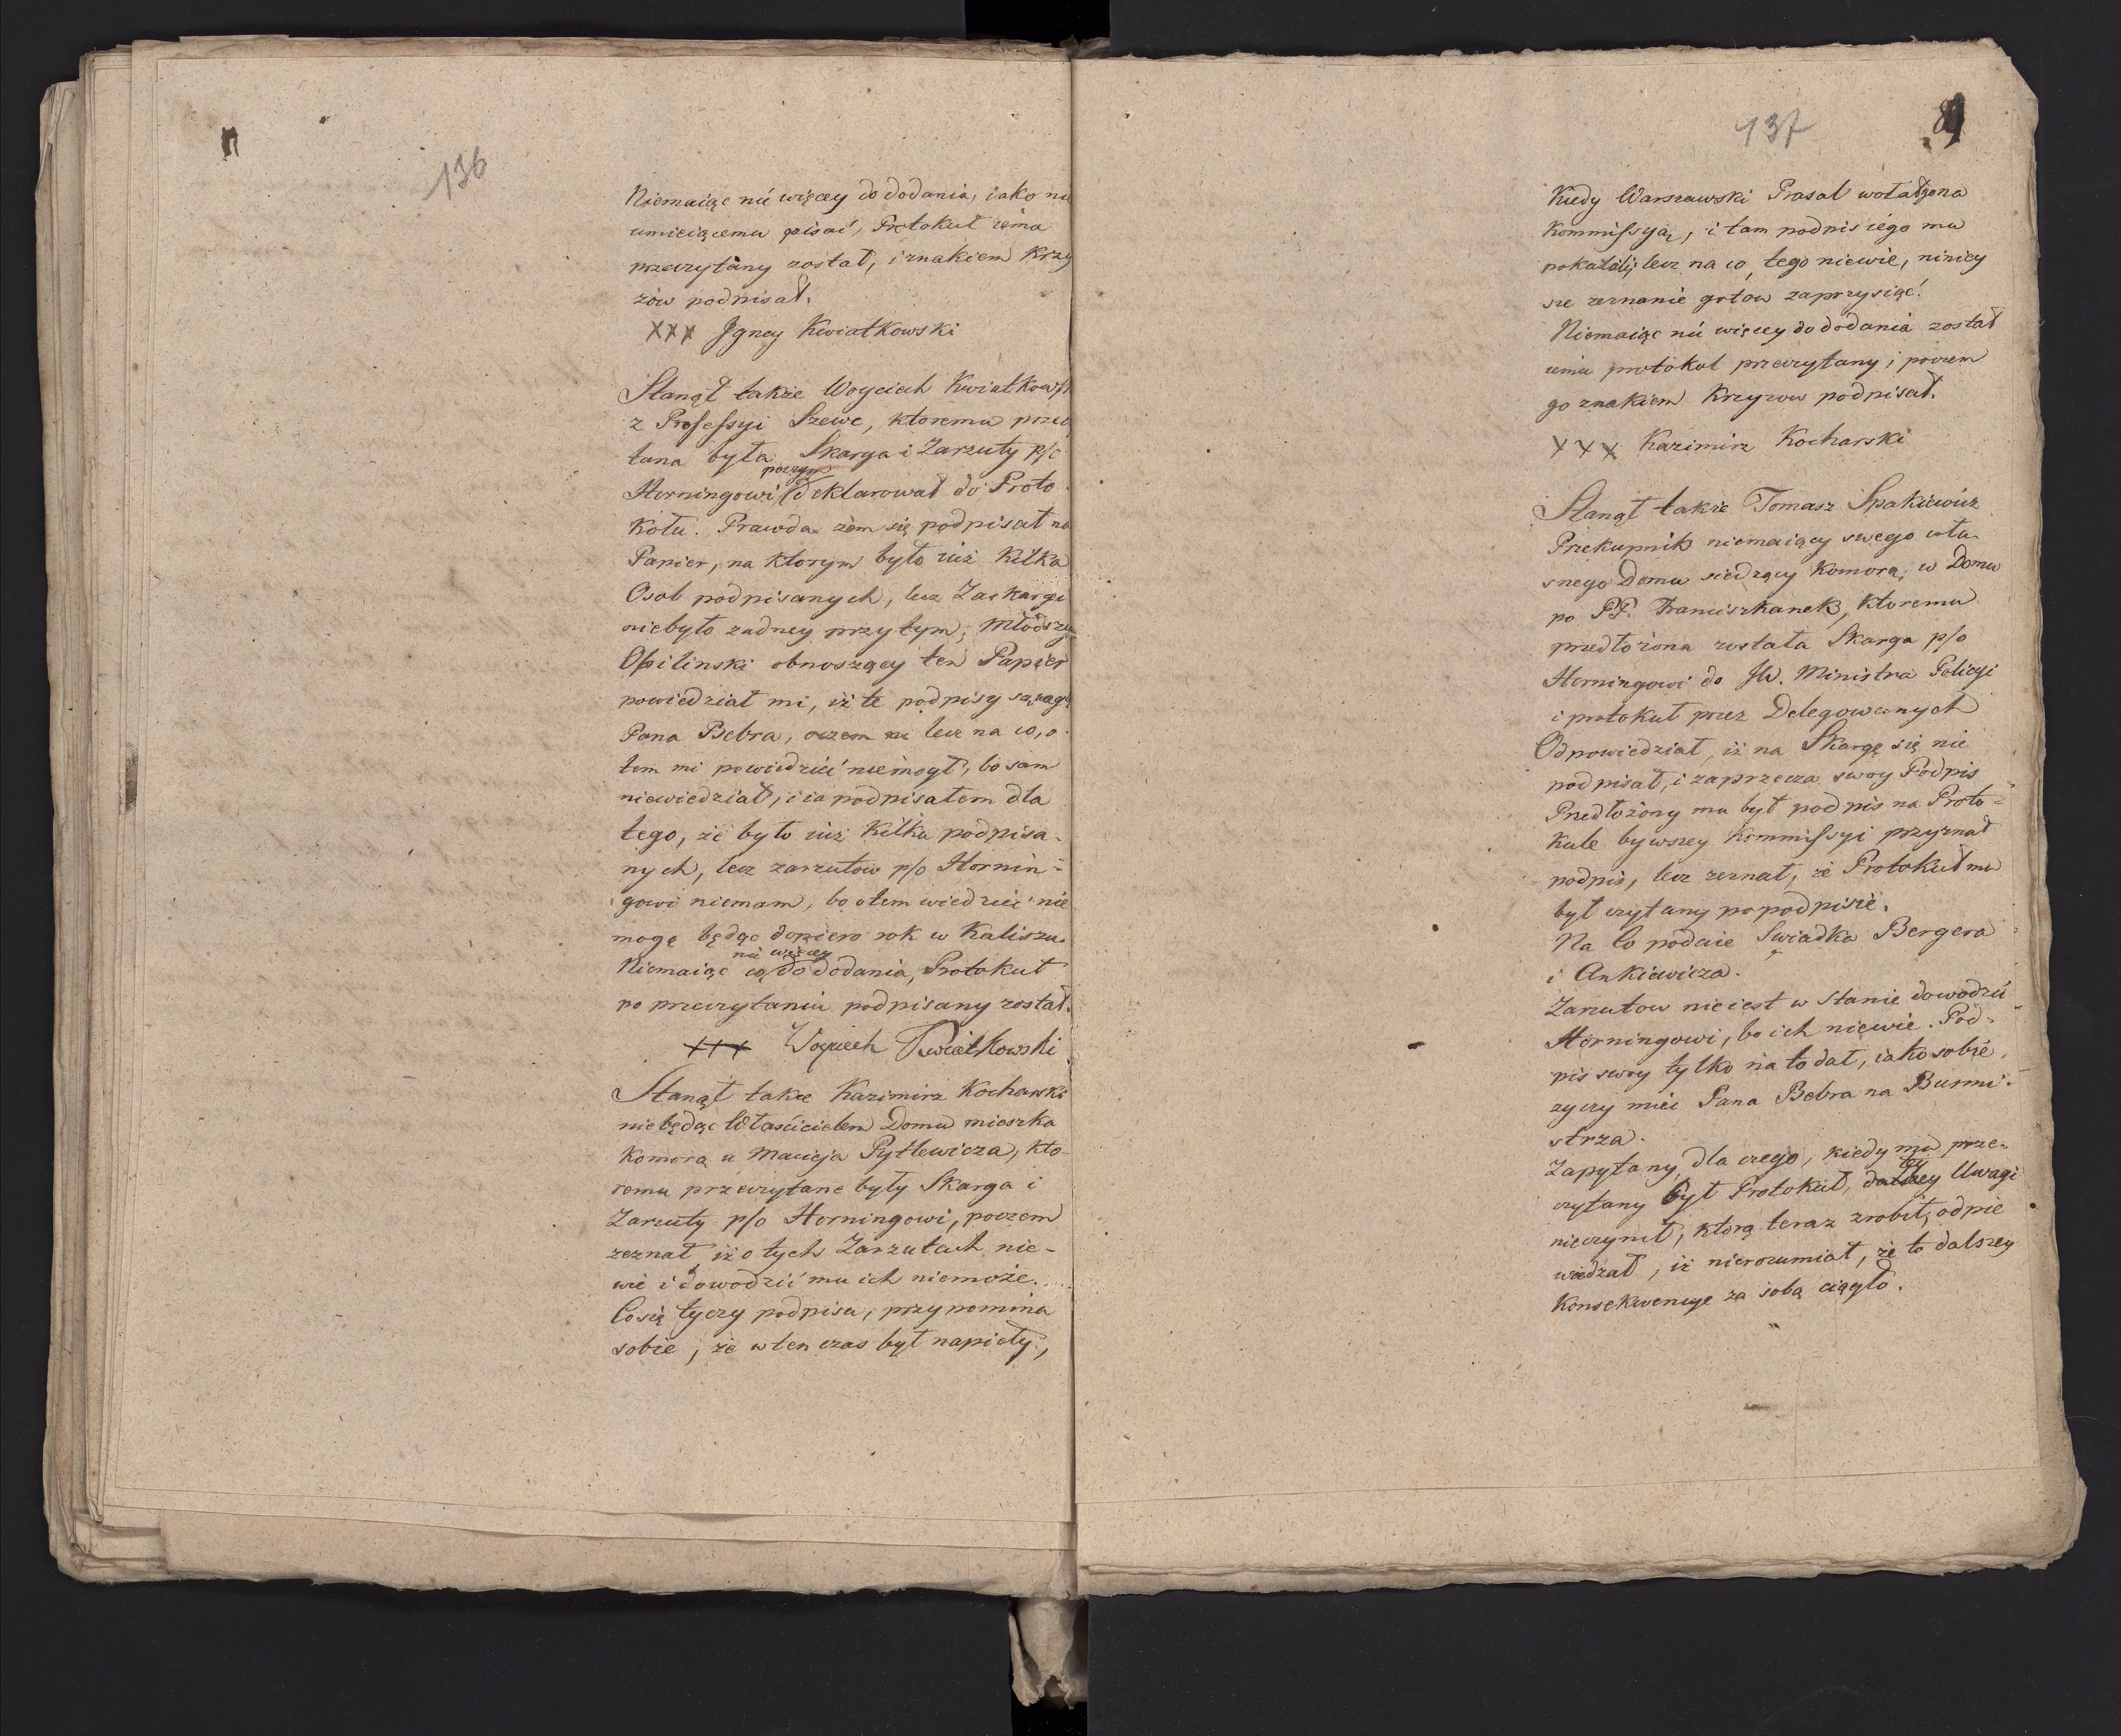 136
Niemaiąc nić więcey do dodania, iako nie
umieiącemu pisać, Protokuł iemu
przeczytany został, i znakiem Krzy
żów podpisał.
XXX Jgney Kwiatkowski
Stanął także Woyciech Kwiatkowski
z Professyi Szewc, ktoremu przec
tana była Skarga i Zarzuty p/c
poczym
Horningowi deklarował do Proto
kołu. Prawda żem się podpisał na
Papier, na ktorym było iuż kilka
Osob podpisanych, lecz Zaskargi
niebyło żadney przy tym; Młodszy
Opilinski obnoszący ten Papier
powiedział mi, iż te podpisy są
Pana Bebra, lecz na co, o
tem mi powiedzieć niemogł, bo sam
niewiedział, i ia podpisałem dla
tego, że było iuż kilka podpisa-
nych, lecz zarzutow p/o Hornin-
gowi niemam, bo otem wiedzieć nie
mogę będąc dopiero rok w Kaliszu.
nic więcey
Niemaiąc co do dodania, Protokuł
po przeczytaniu podpisany został.
+++ Woyciech Kwiatkowski
Stanął także Kazimirz Kocharski
niebędąc Właścicielem Domu mieszka
Komorą u Macieja Pytlewicza, kto-
remu przeczytane były Skarga i
Zarzuty p/o Horningowi, poczem
zeznał iż o tych Zarzutach nie-
wie i dowodzić mu ich niemoże.
Co się tyczy podpisu, przypomina
sobie, że wten czas był napiety,
137
89
Kiedy Warszawski Prasał
Kommissyą, i tam podpis iego mu
pokazali, lecz na co, tego niewie, niniey
sze zeznanie gotow zaprzysiąć.
Niemaiąc nić więcey do dodania został
iemu protokoł przeczytany i poczem
go znakiem Krzyzow podpisał.
XXX Kazimirz Kocharski
Stanął także Tomasz Spakiewicz
Przekupnik niemaiący swego wła-
snego Domu siedzący Komorą w Domu
po PP. Franciszkanek, ktoremu
przedłożona została Skarga p/o
Horningowi do JW. Ministra Policyi
i protokuł przez Delegowanych
Odpowiedział, iż na Skargę się nie
podpisał, i zaprzecza swoy Podpis
Przedłożony mu był podpis na Proto-
kule bywszey Kommissyi przyznał
podpis, lecz zeznał, że Protokuł mu
był czytany po podpisie.
Na Co podaie Swiadka Bergera
i Ankiewicza.
Zarzutow nie iest w stanie dowodzić
Horningowi, bo ich niewie. Pod-
pis swoy tylko na to dał, iako sobie
zyczy mieć Pana Bebra na Burmi-
strza.
Zapytany, dla czego, kiedy mu prze-
czytany był Protokuł, tey Uwagi
nieczynił, ktorą teraz zrobił, odpie
wiedzał, iż nierozumiał, że to dalszey
Konsekwencye za sobą ciągło.